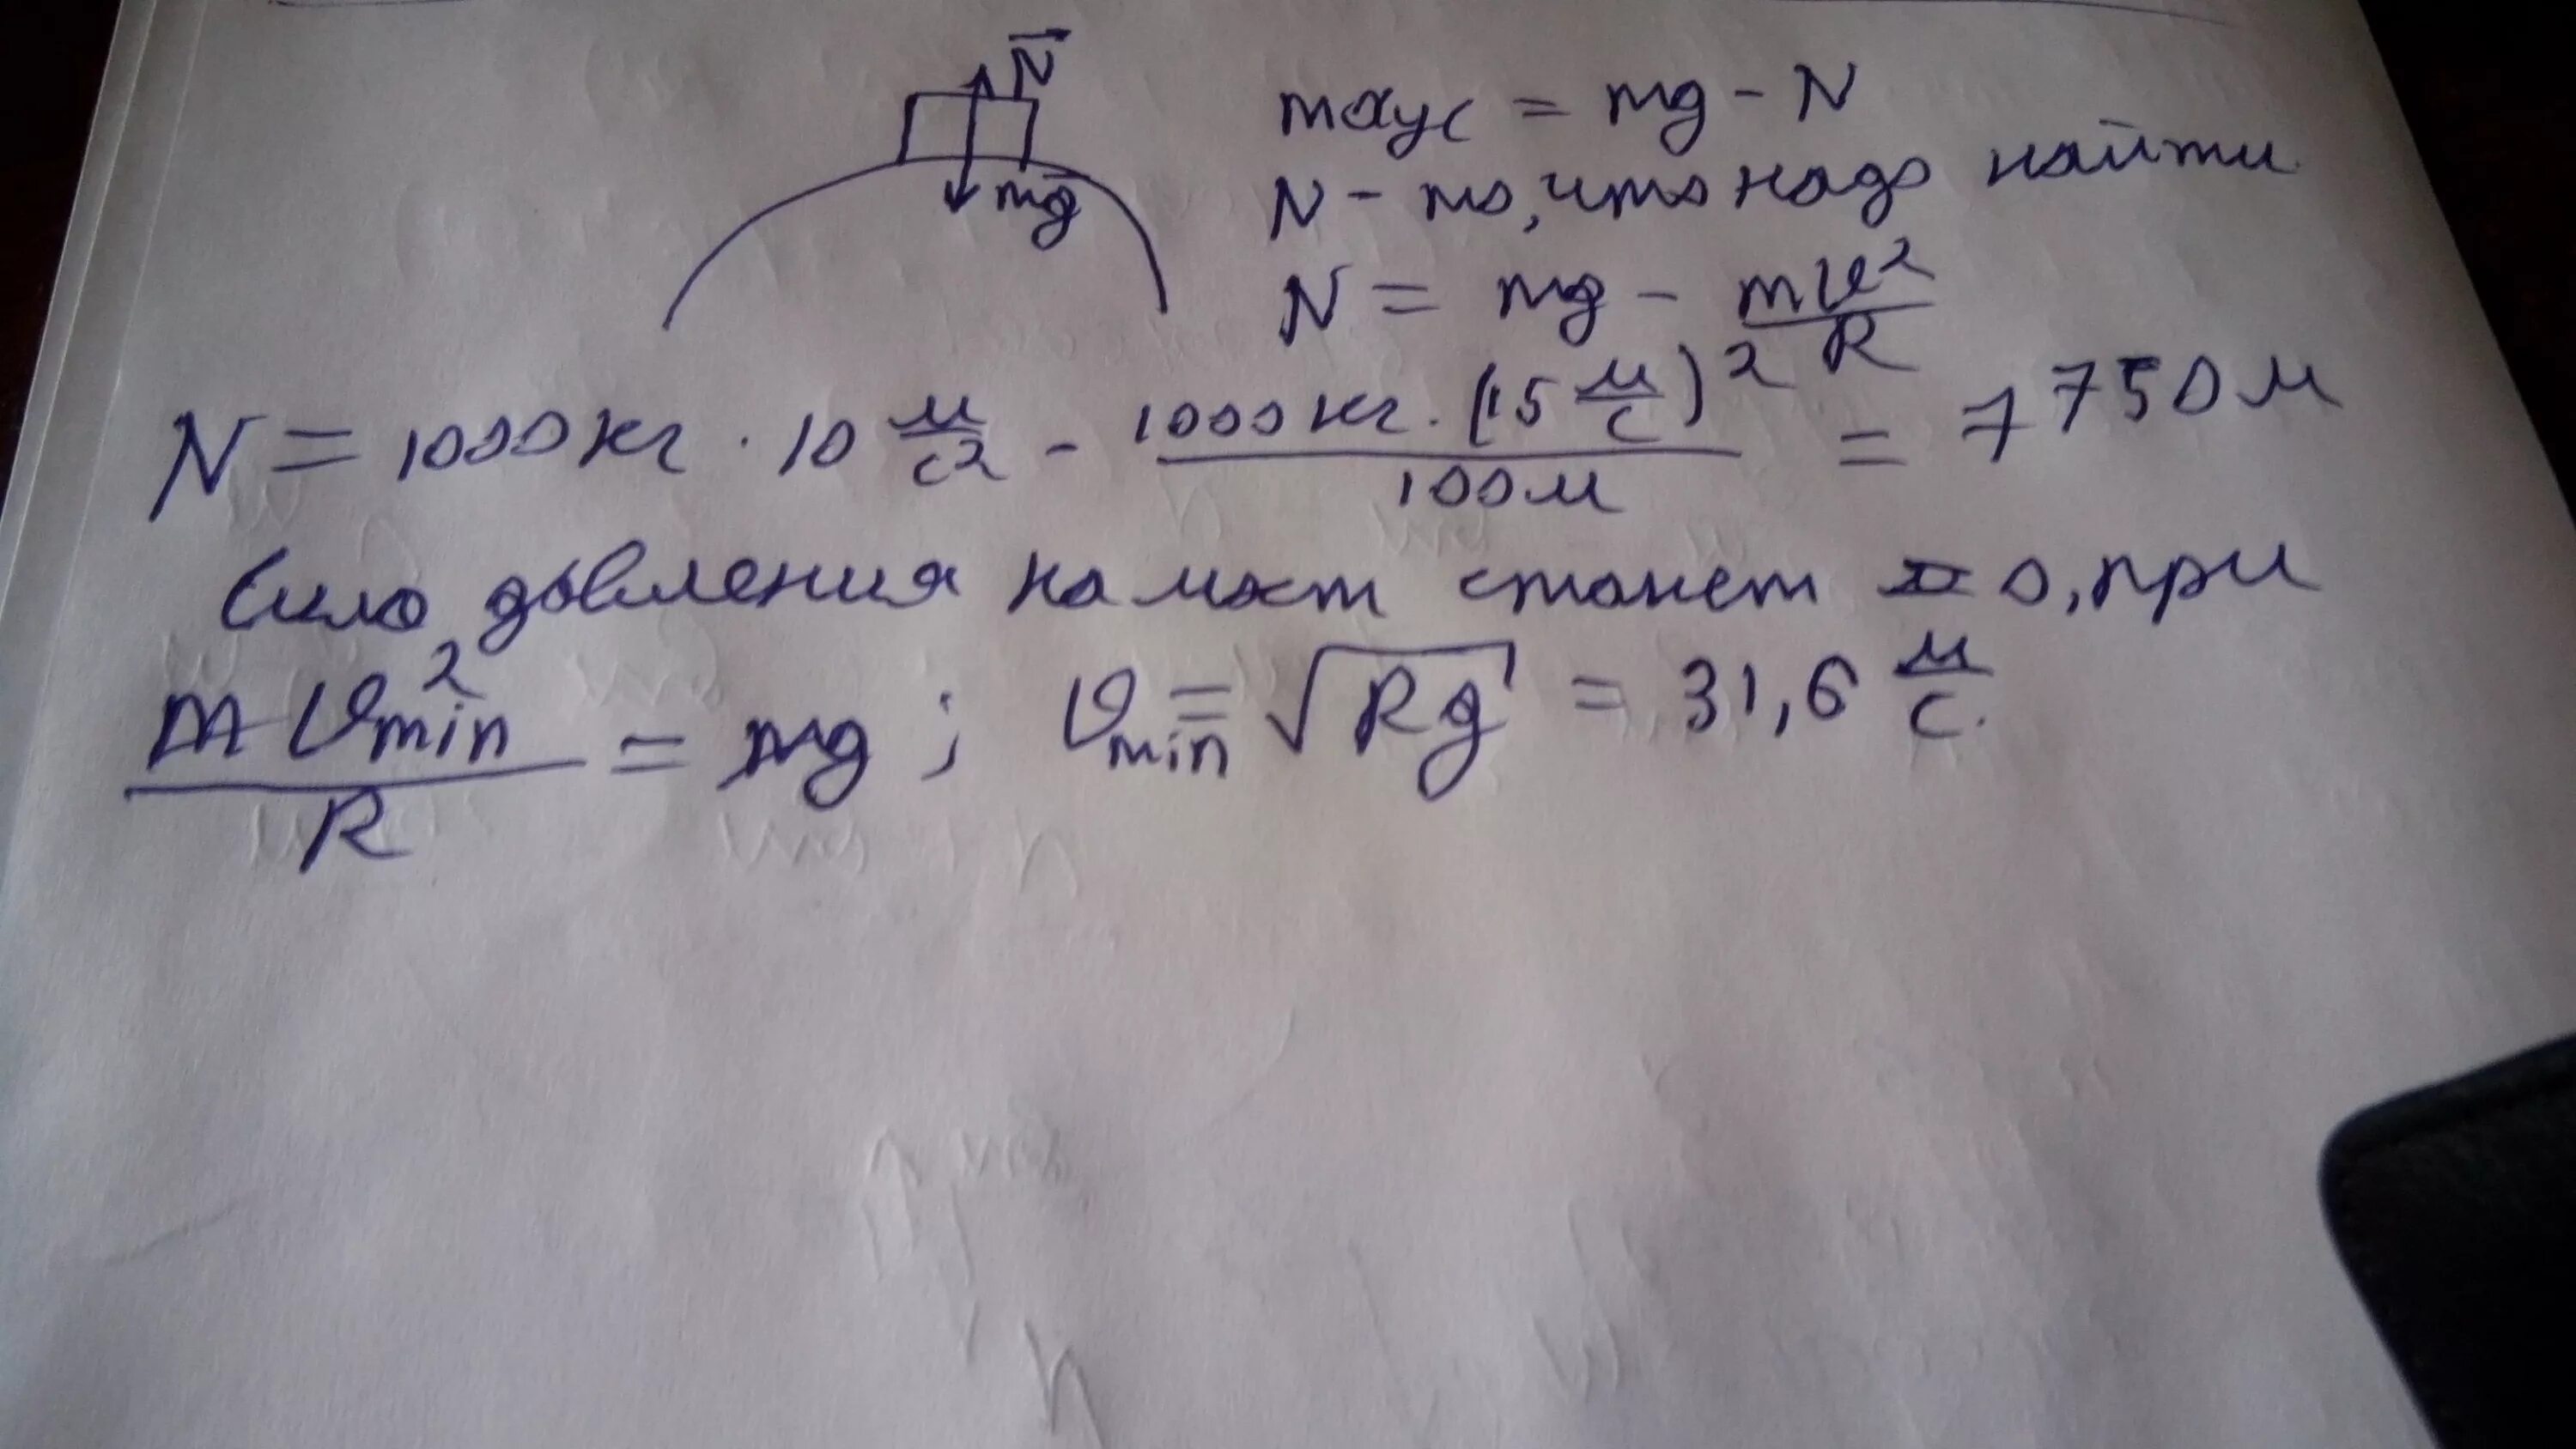 N
mg
maус = mg - N
N - то, что надо найти
N = mg - mυ²/R
N = 1000 кг · 10 м/с² - 1000 кг · (15 м/с)²/100 м = 7750 м
Сила давления на мост станет = 0, при
mυ²min/R = mg ; υmin = √Rg = 31,6 м/с.